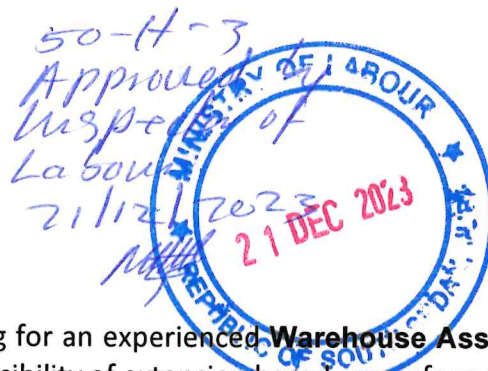 50-H-3
Approved by
Inspector of
Labour
21/12/2023
MINISTRY OF LABOUR
21 DEC 2023
REPUBLIC OF SOUTH
g for an experienced Warehouse Ass